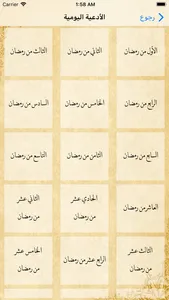 1:58 AM
رجوع
الأدعية اليومية
الأول من رمضان
الثاني من رمضان
الثالث من رمضان
الرابع من رمضان
الخامس من رمضان
السادس من رمضان
السابع من رمضان
الثامن من رمضان
التاسع من رمضان
العاشر من رمضان
الحادي عشر
من رمضان
الثاني عشر
من رمضان
الثالث عشر
من رمضان
الرابع عشر من رمضان
الخامس عشر
من رمضان